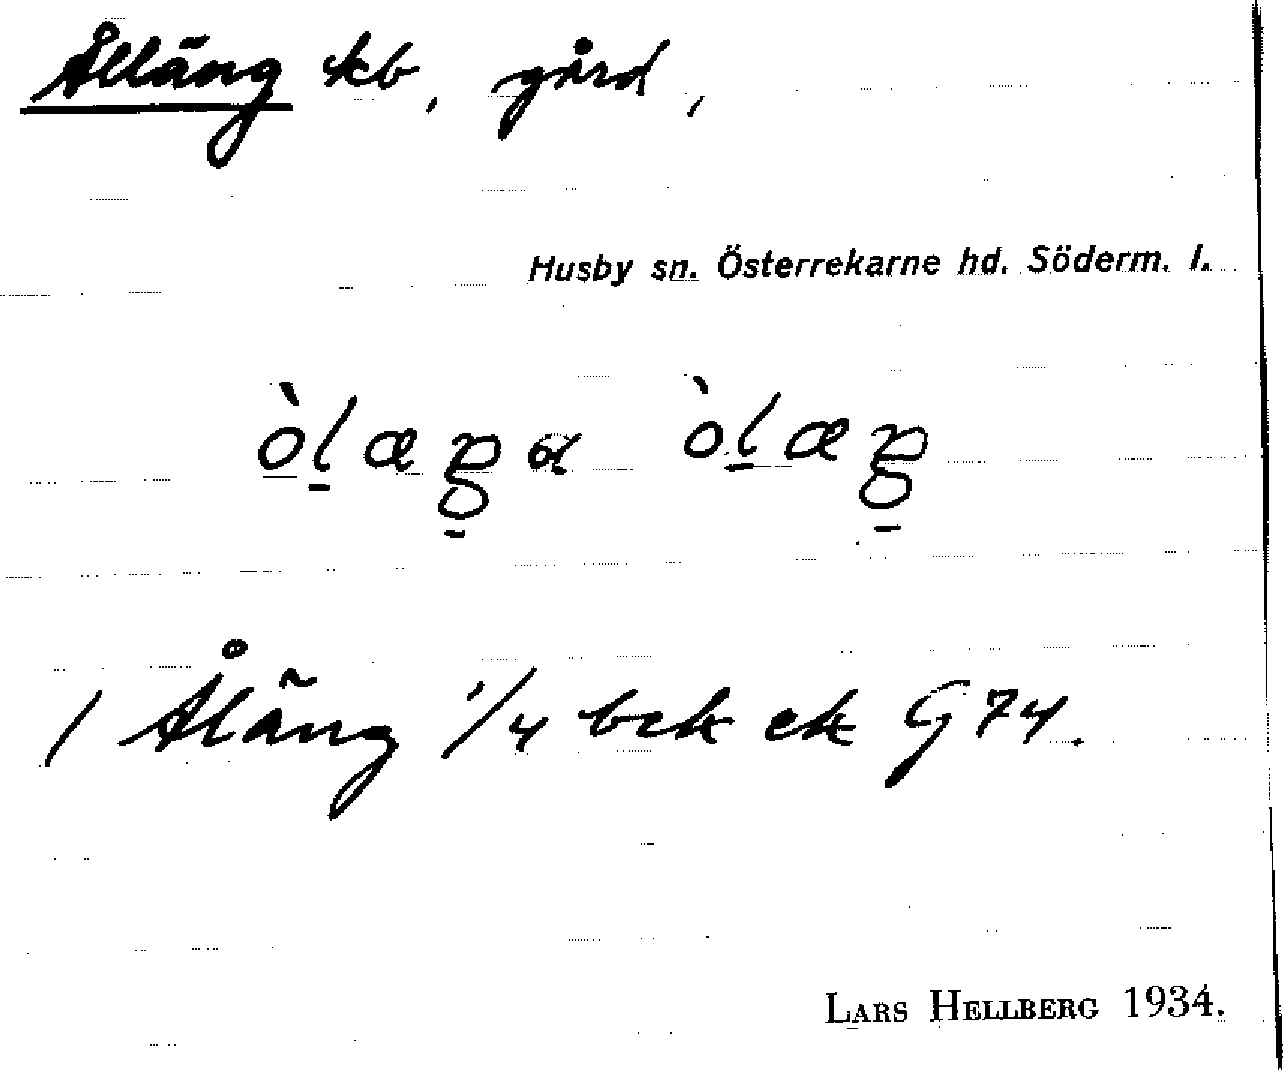 Ålläng kb, gård,
Husby sn. Österrekarne hd. Söderm. l.
òlæŋα òlæŋ
1 Åläng 1/4 bek ek G74.
LARS HELLBERG 1934.